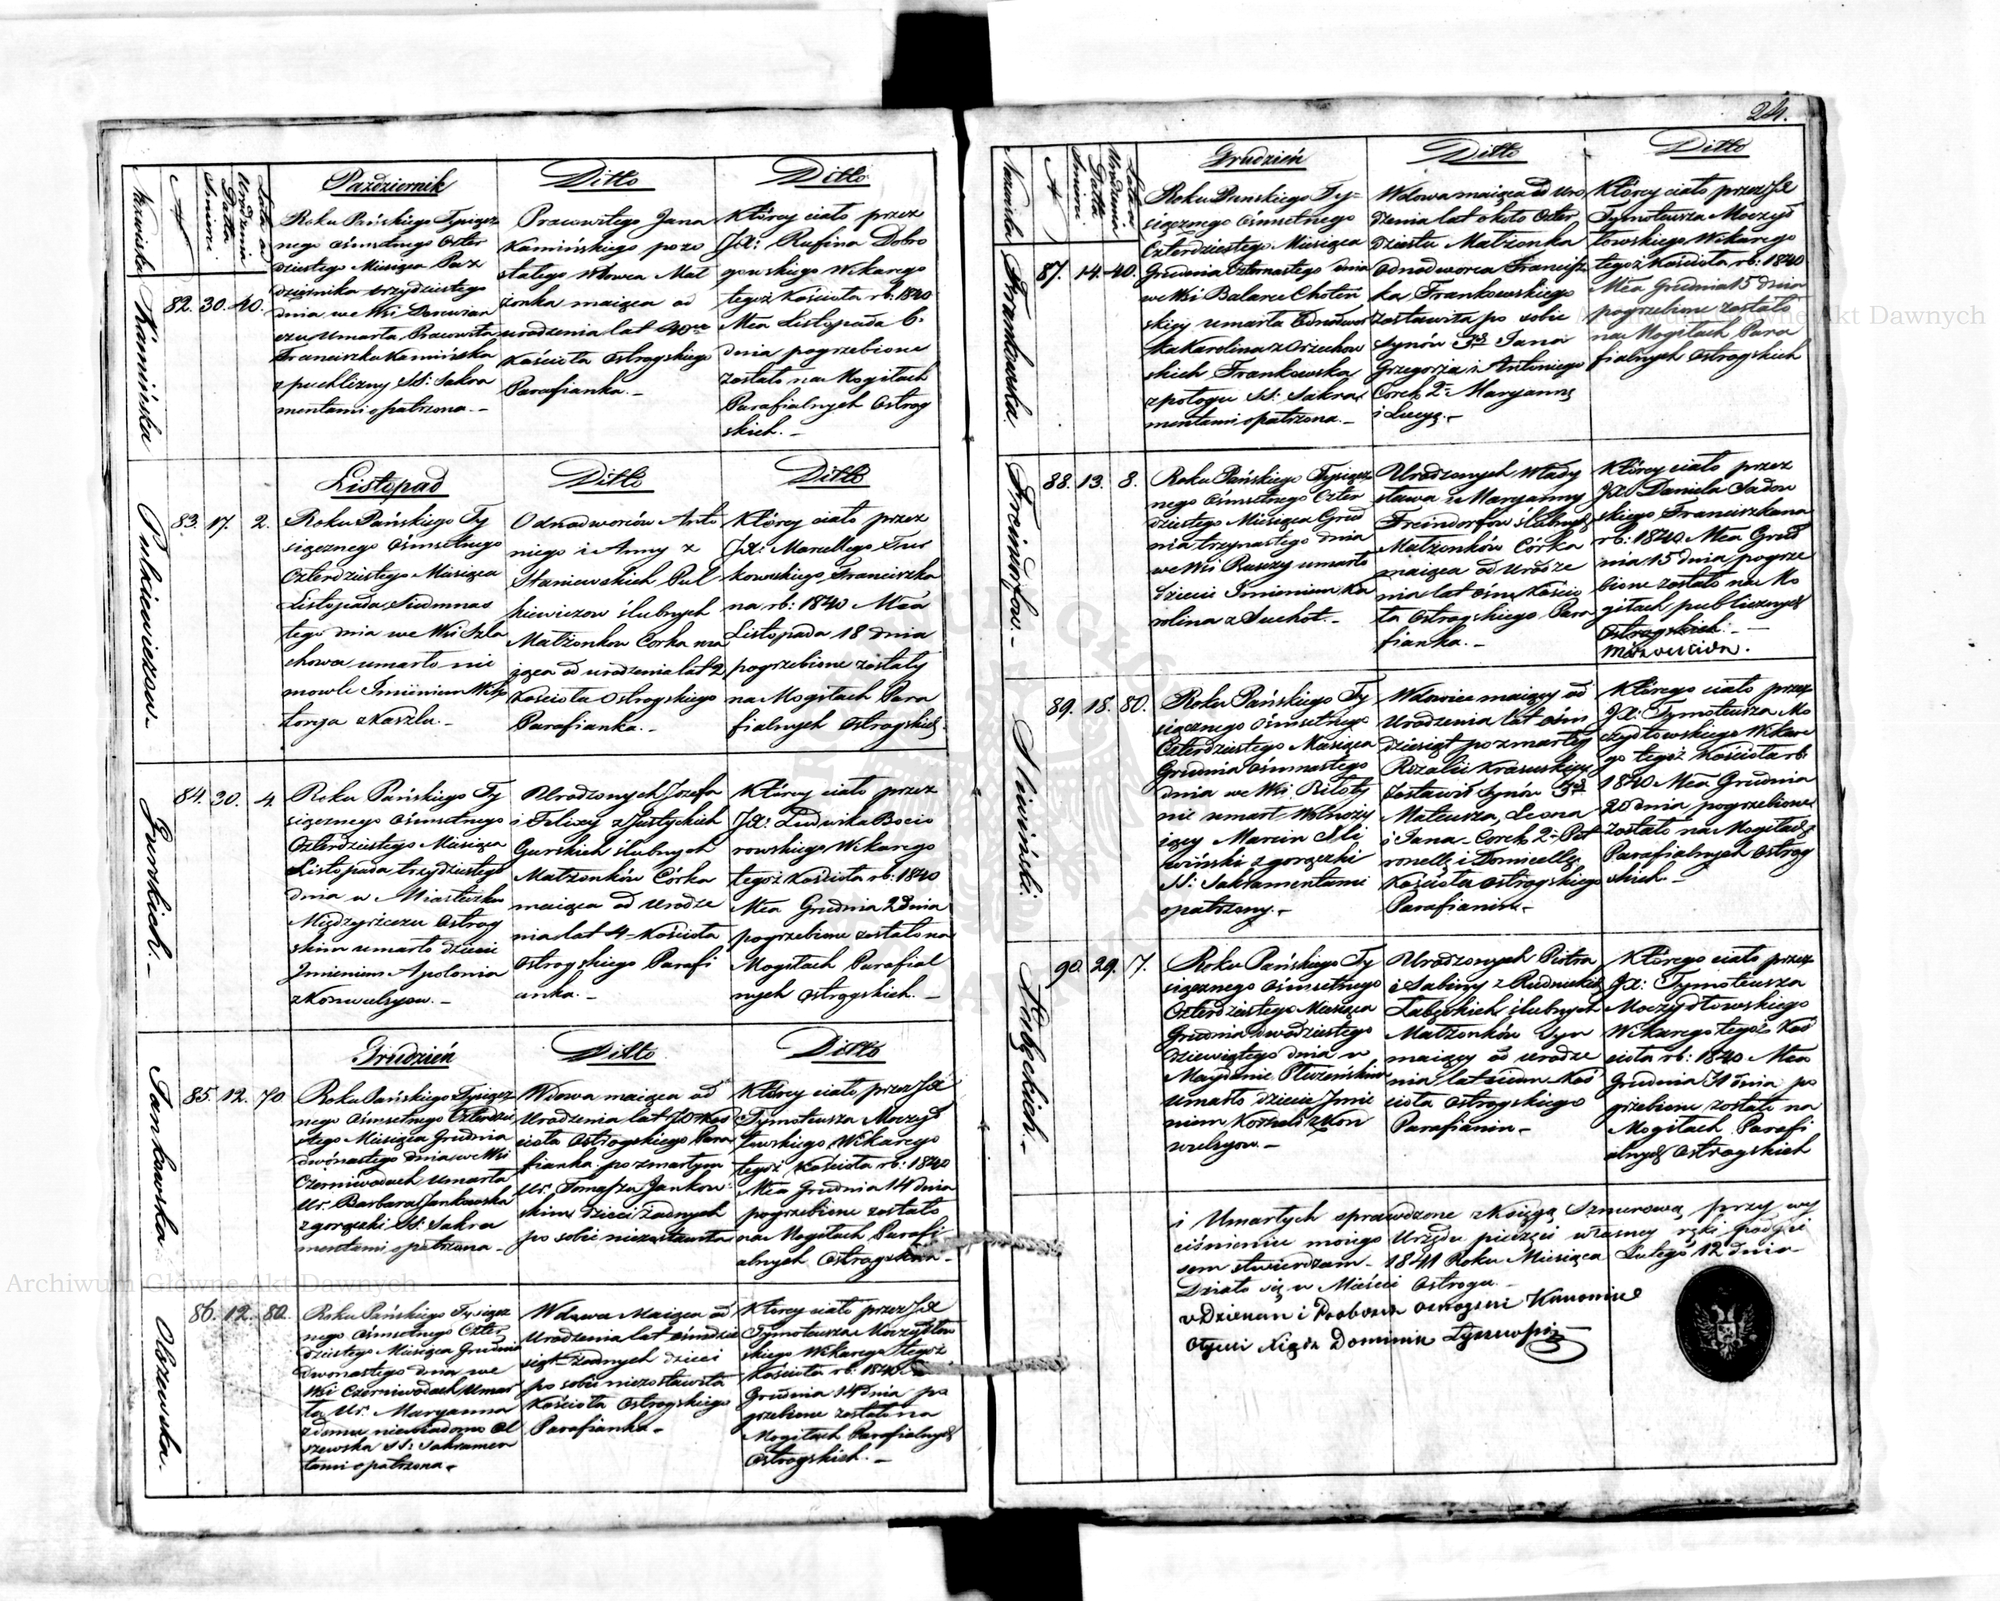 24.
Nazwiska
N
Dnia
Datta
Urodzenia
Lata od
Październik
Ditto
Ditto
Kamińska
82. 30. 40.
Roku Pańskiego Tysiącz
nego ośmsetnego Czter
dziestego Miesiąca Paź
dziernika trzydziestego
dnia we Wsi
umarła Pracowita
Franciszka Kamińska
z puchliny SS: Sakra
mentami opatrzona.-
Pracowitego Jana
Kamińskiego pozo
stałego Wdowca Mał
żonka maiąca od
urodzenia lat 40
Kościoła Ostrogskiego
Parafianka.-
Którey ciało przez
JX: Rufina Dobro
gowskiego Wikarego
tegoż Kościoła rb: 1840
Mca Listopada 6.
dnia pogrzebione
zostało na Mogiłach
Parafialnych Ostrog
skich.-
Listopad
Ditto
Ditto
Pulkiewiczow-
83. 17. 2.
Roku Pańskiego Ty
siącznego Ośmsetnego
Czterdziestego Miesiąca
Listopada Siedmnas
tego dnia we Wsi Szla
chowa umarło nie
mowle Imieniem Wik
torya z Kaszlu.-
Odnodworców Anto
niego i Anny z
Staniewskich Pul
kiewiczow ślubnych
Małżonkow Corka ma
jąca od urodzenia lat 2
Kościoła Ostrogskiego
Parafianka.-
Którey ciało przez
JX: Marcellego Tur
kowskiego Franciszka
na rb: 1840 Mca
Listopada 18 dnia
pogrzebione zostały
na Mogiłach Para
fialnych Ostrogskich.
Gurskich.-
84. 30. 4.
Roku Pańskiego Ty
siącznego ośmsetnego
Czterdziestego Miesiąca
Listopada trzydziestego
dnia w Miasteczku
Międzyrzeczu Ostrog
skim umarło dziecie
Imieniem Apolonia
z Konwulsyow.-
Urodzonych Józefa
i Felixy z Justyckich
Gurskich ślubnych
Małżonków Córka
maiąca od urodze
nia lat 4- Kościoła
Ostrogskiego Parafi
anka.-
Którey ciało przez
JX: Ludwika Bocio
rowskiego Wikarego
tegoż Kościoła rb: 1840
Mca Grudnia 2 dnia
pogrzebione zostało na
Mogiłach Parafial
nych Ostrogskich.-
Grudzień
Ditto
Ditto
Jankowska.
85. 12. 70
Roku Pańskiego Tysiącz
nego Ośmsetnego Czterdzie
stego Miesiąca Grudnia
dwónastego dnia we Wsi
Czerniwodach Umarła
Ur. Barbara Jankowska
z gorączki SS: Sakra
mentami opatrzona-
Wdowa maiąca od
Urodzenia lat 70 Koś
cioła Ostrogskiego Para
fianka po zmarłym
Ur. Tomaszu Jankow
skim dzieci żadnych
po sobie niezostawiła
Którey ciało przez JX
Tymoteusza Moczyd
łowskiego Wikarego
tegoż Kościoła rb: 1840
Mca Grudnia 14 dnia
pogrzebione zostało
na Mogiłach Parafi
alnych Ostrogskich-
Olszewska.
86. 12. 80.
Roku Pańskiego Tysiącz
nego Ośmsetnego Czter
dziestego Miesiąca Grudnia
dwonastego dnia we
Wsi Czerniwodach Umar
ła Ur. Maryanna
z domu niewiadomo Ol
szewska SS: Sakramen
tami opatrzona.-
Wdowa Maiąca od
Urodzenia lat ośmdzie
siąt żadnych dzieci
po sobie niezostawiła
Kościoła Ostrogskiego
Parafianka.-
Którey ciało przez JX
Tymoteusza Moczydłow
skiego Wikarego tegoż
Kościoła rb: 1840
Grudnia 14 dnia po
grzebione zostało na
Mogiłach Parafialnych
Ostrogskich.-
Nazwiska
N
Dnia
Datta
Urodzenia
Lata od
Grudzień
Ditto
Ditto
Frankowska.
87. 14. 40.
Roku Pańskiego Ty=
siącznego Ośmsetnego
Czterdziestego Miesiąca
Grudnia Czternastego dnia
we Wsi Balarce Choten
skiey umarła Odnodwor
ka Karolina z Orzechow
skich Frankowska
z połogu SS: Sakra
mentami opatrzona.-
Wdowa maiąca od Uro
dzenia lat około Czter
dziestu Małżonka
Odnodworca Francisz
ka Frankowskiego
zostawiła po sobie
synów 3ch Jana
Grzegorza i Antoniego
Corek 2- Maryannę
i Lucyę.-
Którey ciało przez JX
Tymoteusza Moczyd
łowskiego Wikarego
tegoż Kościoła rb: 1840
Mca Grudnia 15 dnia
pogrzebione zostało
na Mogiłach Para
fialnych Ostrogskich
Freindorfow.-
88. 13. 8.
Roku Pańskiego Tysiącz
nego Ośmsetnego Czter
dziestego Miesiąca Grud
nia trzynastego dnia
we Wsi umarło
dziecie Imieniem Ka
rolina z Suchot.-
Urodzonych Włady
sława i Maryanny
Freindorfow ślubnych
Małżonków Córka
maiąca od Urodze
nia lat ośm Kościo
ła Ostrogskiego Para
fianka.-
Którey ciało przez
JX: Daniela Sadow
skiego Franciszkana
rb: 1840 Mca Grud
nia 15 dnia pogrze
bione zostało na Mo
giłach publicznych
Ostrogskich.-
Sliwiński.
89. 18. 80.
Roku Pańskiego Ty
siącznego Ośmsetnego
Czterdziestego Miesiąca
Grudnia ośmnastego
dnia we Wsi
umarł Wolnoży
iący Marcin Sli
wiński z gorączki
SS: Sakramentami
opatrzony.-
Wdowiec maiący od
Urodzenia lat ośm
dziesiąt po zmarłey
Rozalii Krasuskiey
zostawił Synów 3ch
Mateusza, Leona
i Jana- Corek 2- Pet
ronellę i Domicellę
Kościoła Ostrogskiego
Parafianin.-
Którego ciało przez
JX: Tymoteusza Mo
czydłowskiego Wikare
go tegoż Kościoła rb:
1840 Mca Grudnia
20 dnia pogrzebione
zostało na Mogiłach
Parafialnych Ostrog
skich.-
Łabęckich.-
90. 29. 7.
Roku Pańskiego Ty
siącznego Ośmsetnego
Czterdziestego Miesiąca
Grudnia dwódziestego
dziewiątego dnia w
Maydanie
umarło dziecie Imie
niem Korneli z Kon
wulsyow.-
Urodzonych Piotra
i Sabiny z Rudnickich
Łabęckich ślubnych
Małżonków Syn
maiący od urodze
nia lat siedm Koś
cioła Ostrogskiego
Parafianin-
Którego ciało przez
JX: Tymoteusza
Moczydłowskiego
Wikarego tegoż Koś
cioła rb: 1840 Mca
Grudnia 31 dnia po
grzebione zostało na
Mogiłach Parafi
alnych Ostrogskich
i Umarłych sprawdzone z Księgą Sznurową przy wy
ciśnieniu moiego Urzędu pieczęci własney ręki podpi
sem stwierdzam- 1841 Roku Miesiąca Lutego 12 dnia-
Działo się w Mieście Ostrogu-
Dziekan i Proboszcz Ostrogski Kanonik
Xiądz Dominik
Archiwum Główne Akt Dawnych
Archiwum Główne Akt Dawnych